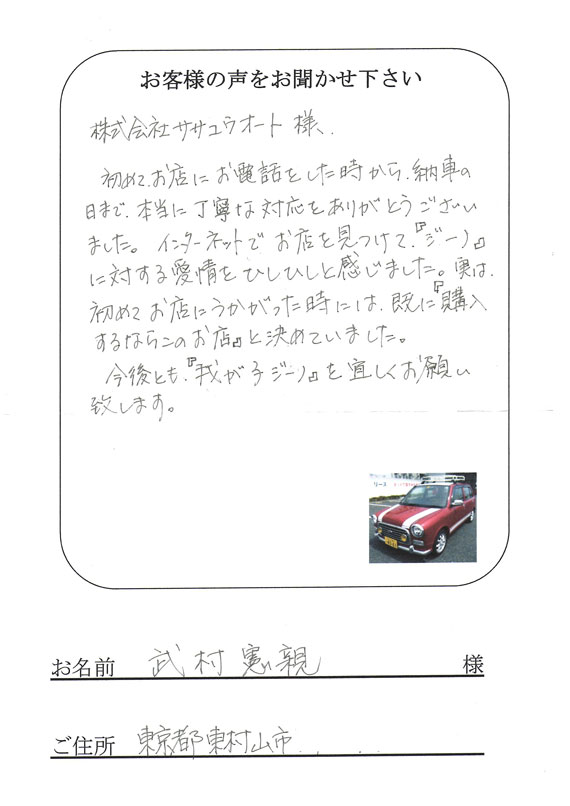 お客様の声をお聞かせ下さい
株式会社ササユウオート 様、
初めてお店にお電話をした時から、納車の
日まで、本当に丁寧な対応をありがとうござい
ました。インターネットでお店を見つけて、『ジーノ』
に対する愛情をひしひしと感じました。実は、
初めてお店にうかがった時には、既に『購入
するならこのお店』と決めていました。
今後とも、『我が子ジーノ』を宜しくお願い
致します。
リース
お名前 武村憲親 様
ご住所 東京都東村山市